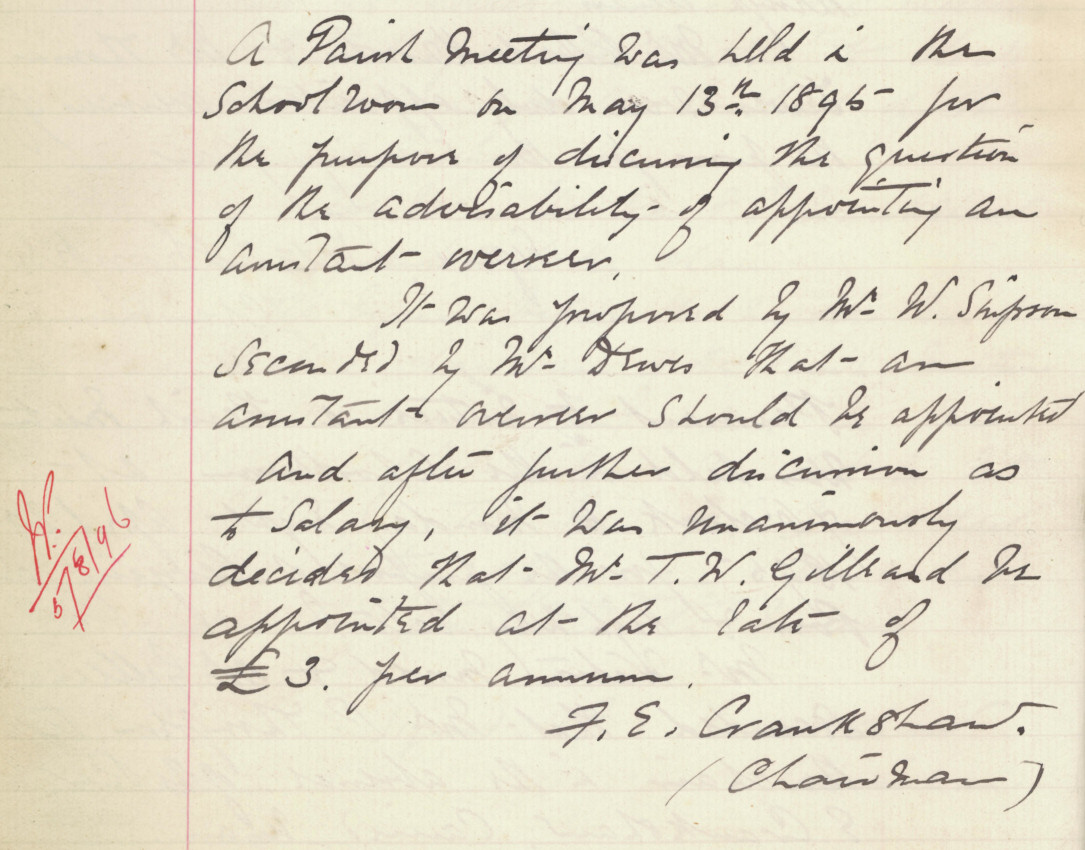 A Parish Meeting was held in the
Schoolroom on May 13th 1895 for
the purpose of discussing the question
of the advisability of appointing an
assistant overseer.
It was proposed by Mr W. Simpson
seconded by Mr Dewes that an
assistant overseer should be appointed
and after further discussion as
to salary, it was unanimously
decided that Mr T. W. Gilleard be
appointed at the rate of
£3. per annum.
F. E. Crankshaw.
(Chairman)
8/96